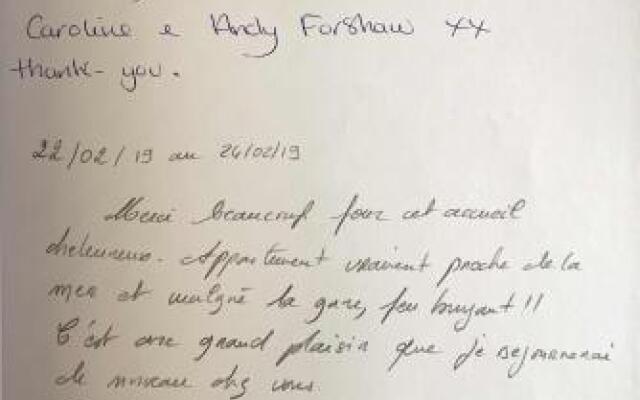 Caroline e Andy Forshaw xx
thank-you.
22/02/19 au 24/02/19
Merci beaucoup pour cet accueil
chaleureux. Appartement vraiment proche de la
mer et malgré la gare, peu bruyant !!
C'est avec grand plaisir que je séjournerai
de nouveau chez vous.